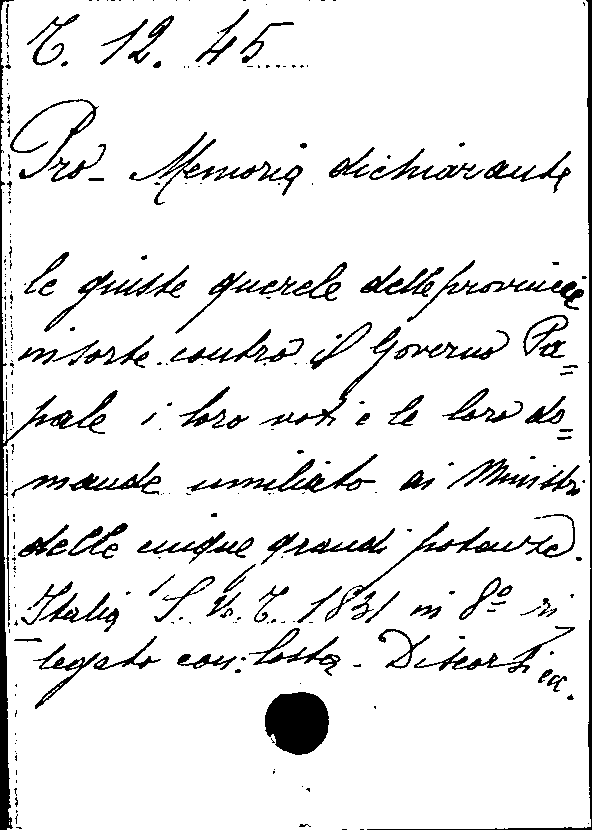 T. 12. 45
Pro-Memoria dichiarante
le giuste querele delle provincie
insorte contro il Governo Pa=
pale i loro voti e le loro do=
mande umiliato ai Ministri
delle cinque grandi potenze.
Italia S. N. T. 1831 in 8º ri
legato con: Costa - Discorsi ec.